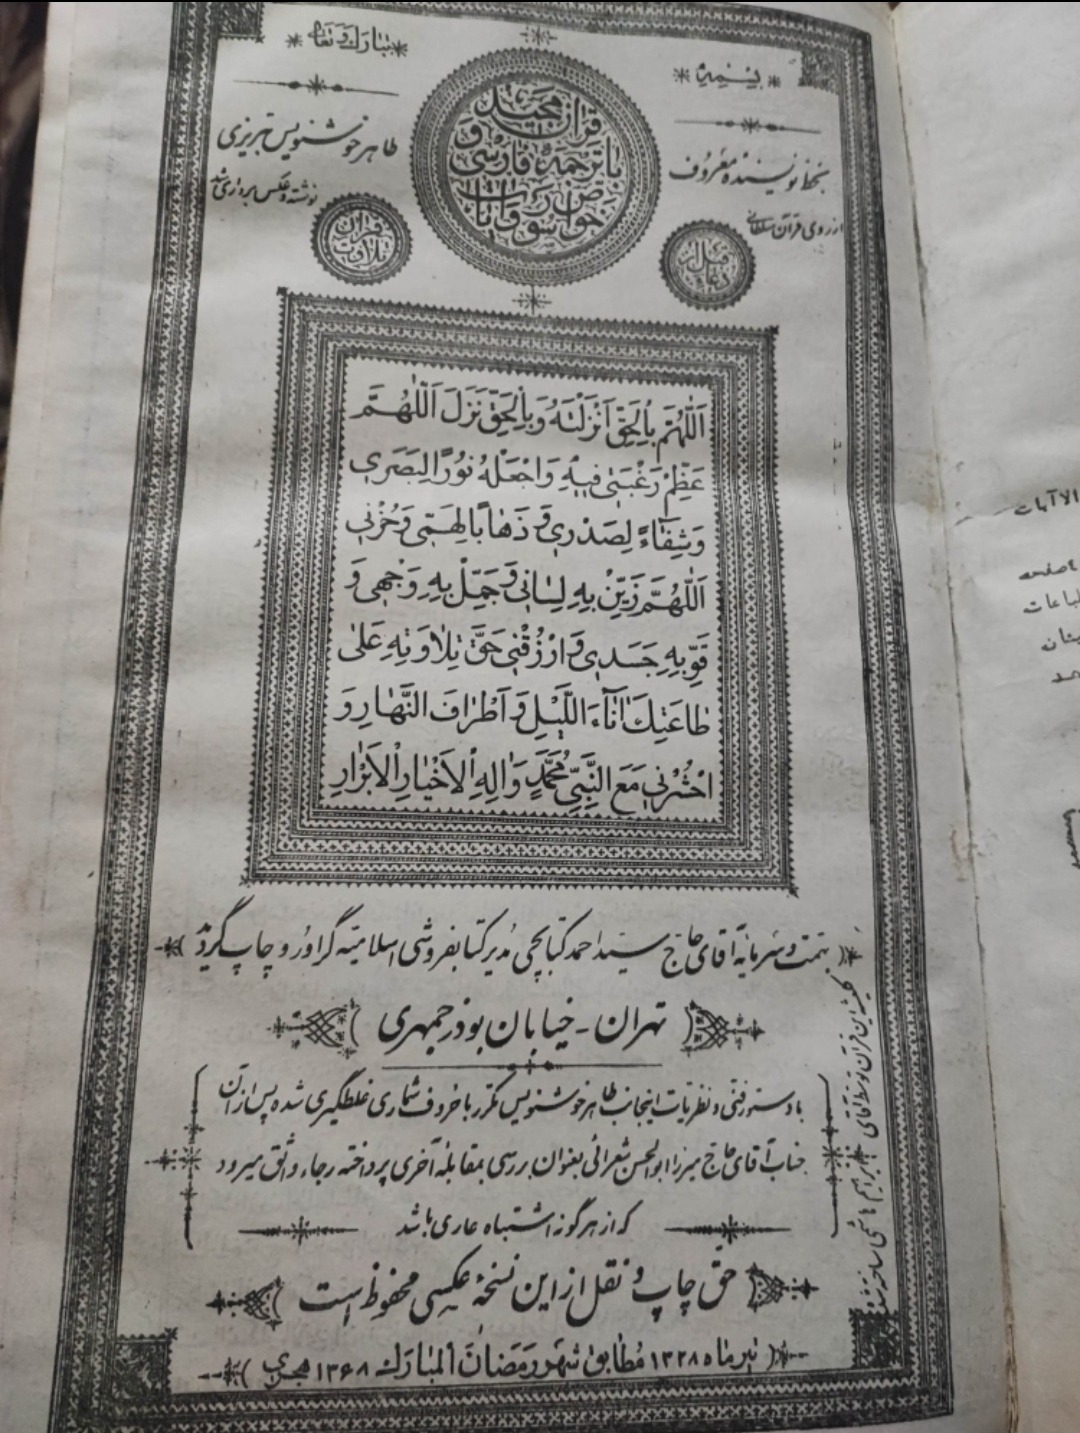 بسمه
تبارک و تعالی
قرآن مجید
با ترجمه فارسی و
خواص
سور و آیات
بخط نویسنده معروف
طاهر خوشنویس تبریزی
از روی قرآن سلطانی
نوشته و عکس برداری شد
قرآن
تلاوت
اَللّٰهُمَّ بِالْحَقِّ اَنْزَلْتَهُ وَبِالْحَقِّ نَزَلَ اَللّٰهُمَّ
عَظِّمْ رَغْبَتی فیهِ وَاجْعَلْهُ نُورًا لِبَصَری
وَشِفٰاءً لِصَدْری وَ ذَهٰابًا لِهَمّی وَحُزْنی
اَللّٰهُمَّ زَیِّنْ بِهِ لِسٰانی وَ جَمِّلْ بِهِ وَجْهی وَ
قَوِّ بِهِ جَسَدی وَ ارْزُقْنی حَقَّ تِلٰاوَتِهِ عَلیٰ
طٰاعَتِکَ اٰنٰآءَ اللَّیْلِ وَ اَطْرٰافَ النَّهٰارِ وَ
احْشُرْنی مَعَ النَّبِیِّ مُحَمَّدٍ وَ اٰلِهِ الْاَخْیٰارِ الْاَبْرٰارِ
بهمت و سرمایه آقای حاج سید احمد کتابچی مدیر کتابفروشی اسلامیه گراور و چاپ گردید
تهران - خیابان بوذرجمهری
با دستور فنی و نظریات اینجانب طاهر خوشنویس مکرر با حروف شماری غلطگیری شده پس از آن
جناب آقای حاج میرزا ابوالحسن شعرانی بعنوان بررسی بمقابله آخری پرداخته رجاء واثق میرود
که از هرگونه اشتباه عاری باشد
حق چاپ و نقل از این نسخۀ عکسی محفوظ است
تیر ماه ۱۳۲۸ مطابق شهر رمضان المبارک ۱۳۶۸ هجری
کلیشه این قرآن توسط آقای ابراهیم هاشمی ساخته شد
الاآیات
صفحه